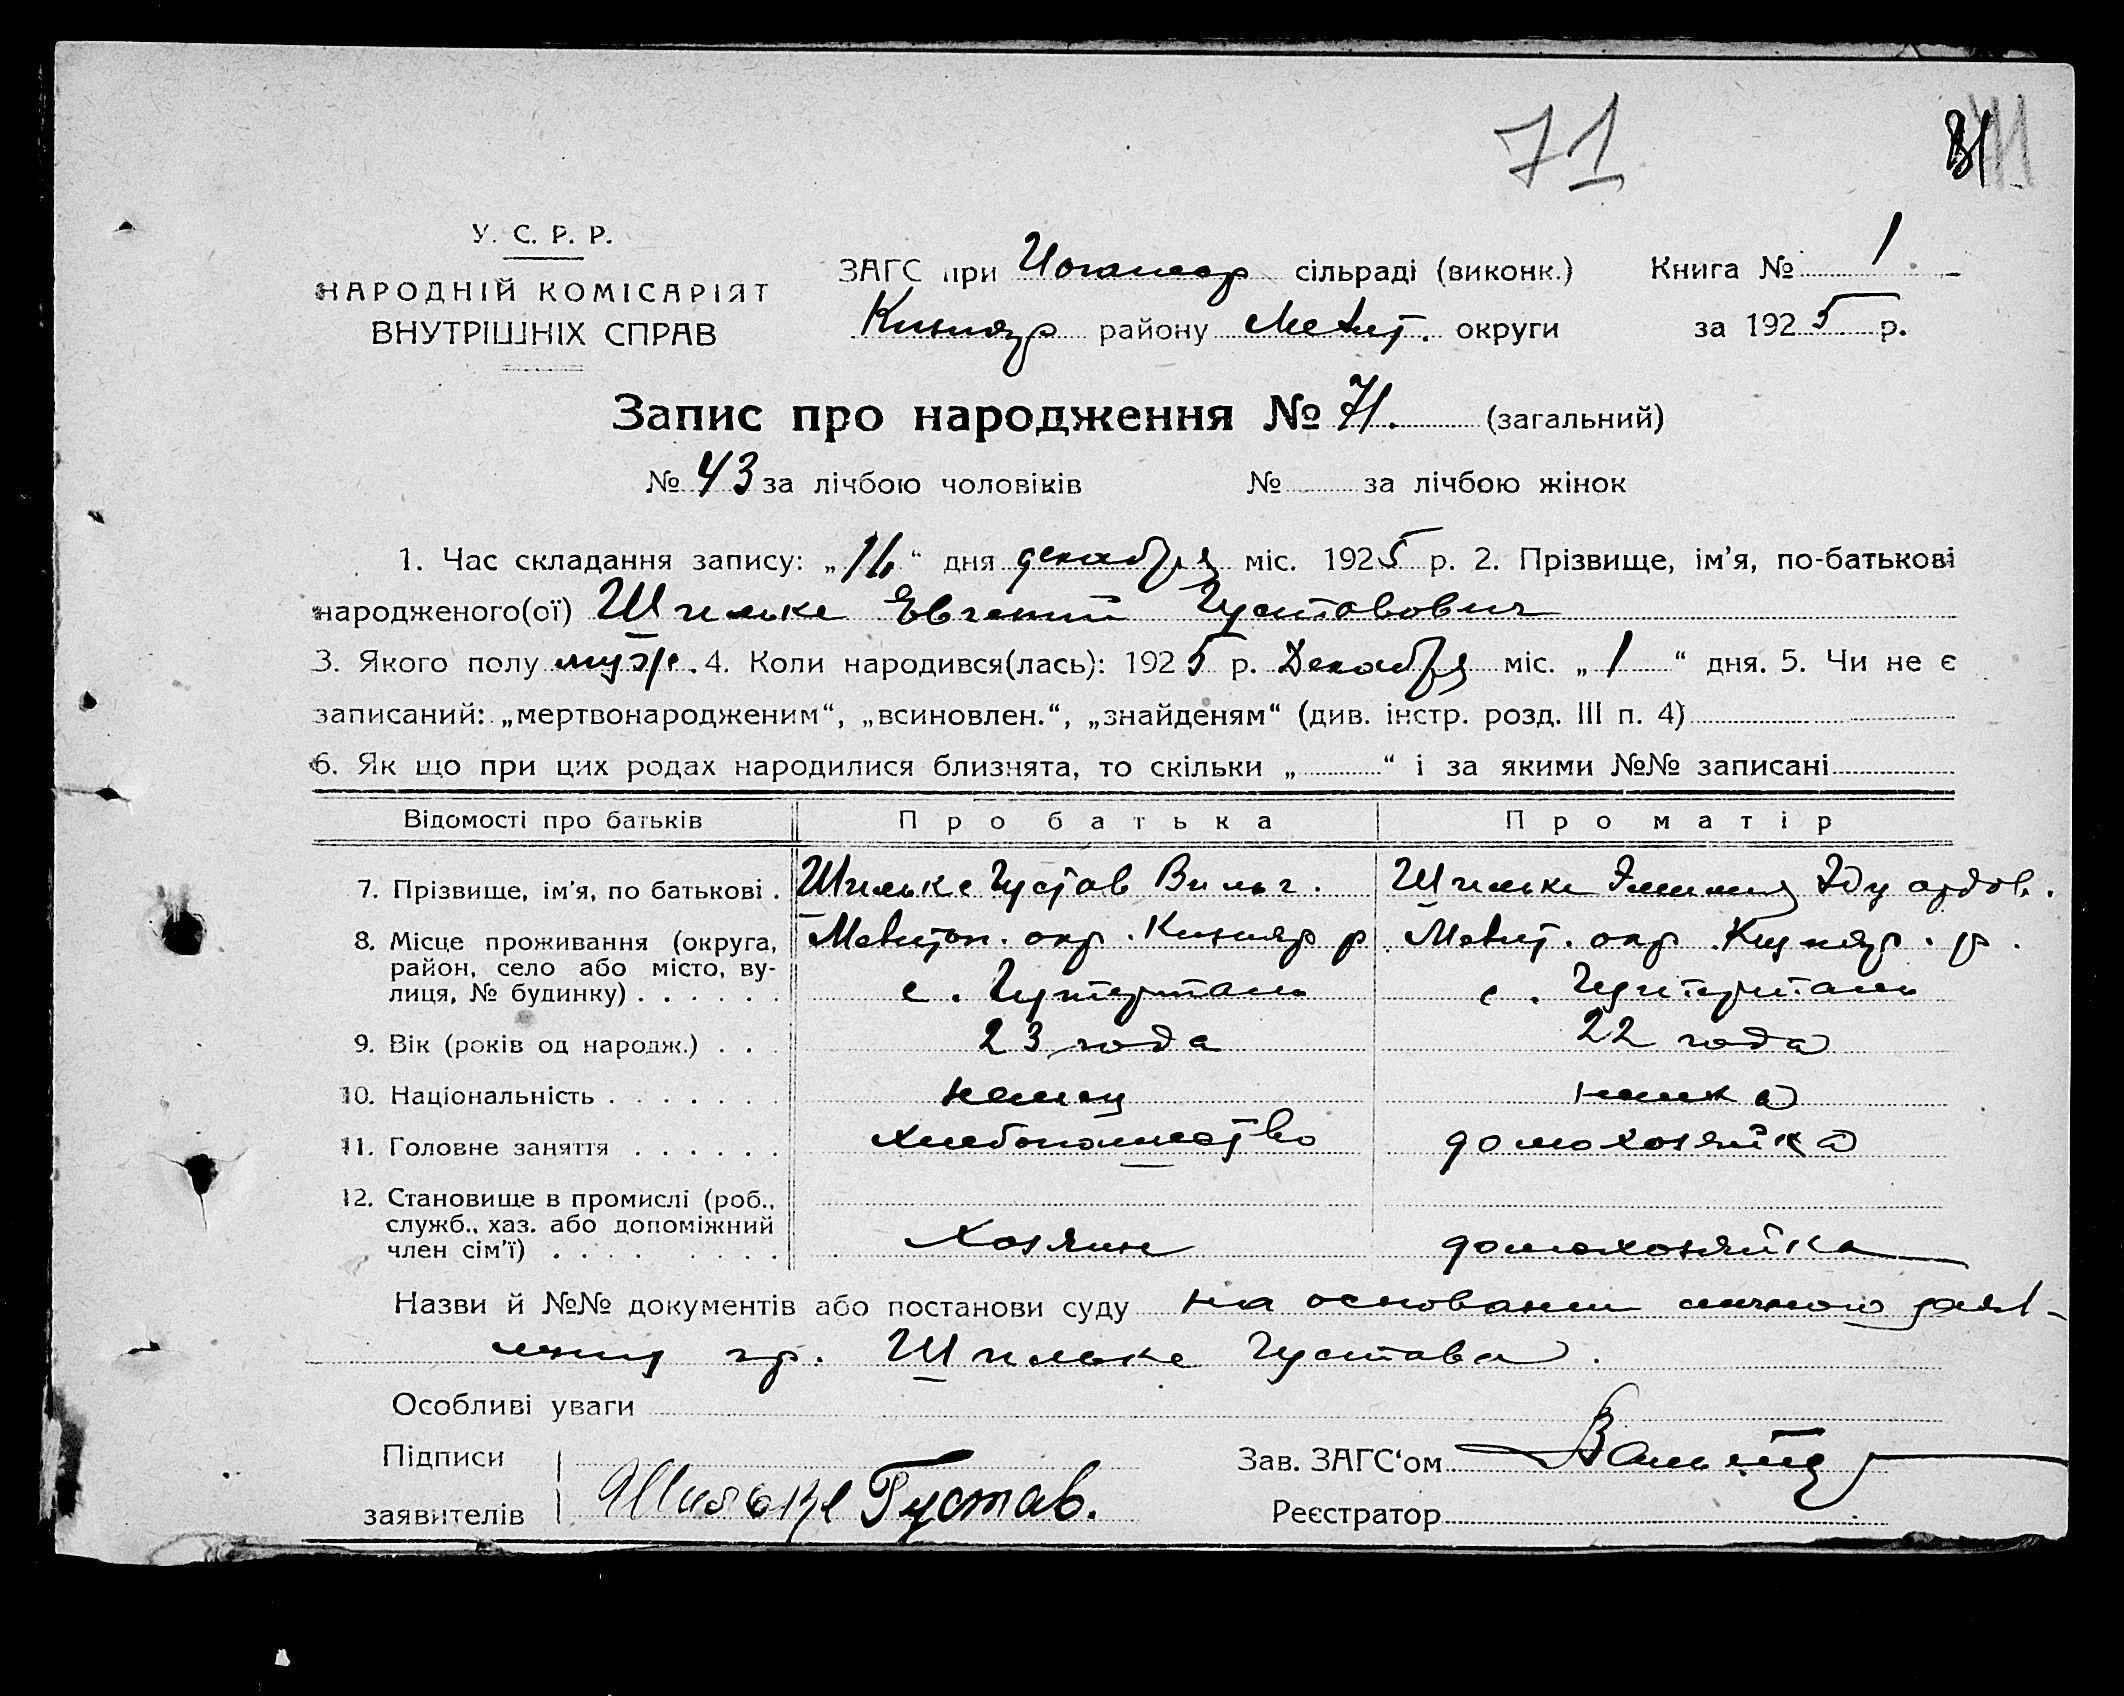 71
У. С. Р. Р.
НАРОДНІЙ КОМІСАРІЯТ
ВНУТРІШНІХ СПРАВ
ЗАГС при сільраді (виконк.) Книга № 1
Кизияр району Мелит. округи за 1925 р.
Запис про народження № 71. (загальний)
№ 43 за лічбою чоловіків № за лічбою жінок
1. Час складання запису: „16“ дня декабря міс. 1925 р. 2. Прізвище, ім’я, по-батькові
народженого(ої) Шильке Евгений Густавович
3. Якого полу муж. 4. Коли народився(лась): 1925 р. Декабря міс. „1“ дня. 5. Чи не є
записаний: „мертвонародженим“, „всиновлен.“, „знайденям“ (див. інстр. розд. III п. 4)
6. Як що при цих родах народилися близнята, то скільки „ “ і за якими №№ записані
Відомості про батьків Про батька Про матір
7. Прізвище, ім’я, по батькові . Шильке Густав Вильг. Шильке Эмилия Эдуардов.
8. Місце проживання (округа, район, село або місто, вулиця, № будинку) . . . . . . Мелитоп. окр. Кизияр р. Мелит. окр. Кизияр. р.
с. Гутерталь с. Гутерталь
9. Вік (років од народж.) . . . 23 года 22 года
10. Національність . . . . . . . немец немка
11. Головне заняття . . . . . . хлебопашество домохозяйка
12. Становище в промислі (роб., служб., хаз. або допоміжний член сім’ї) . . . . . . . . Хозяин домохозяйка
Назви й №№ документів або постанови суду на основании личного заяв-
ления гр. Шильке Густава.
Особливі уваги
Підписи
заявителів Шильке Густав.
Зав. ЗАГС‘ом
Реєстратор